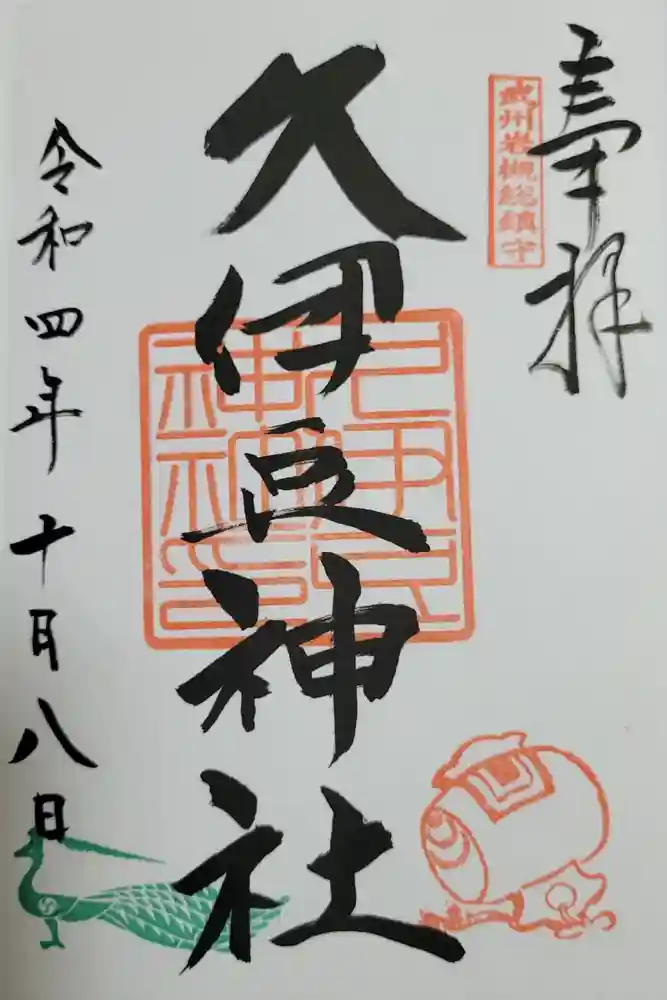 奉拝
武州岩槻総鎮守
久伊豆神社
令和四年十月八日